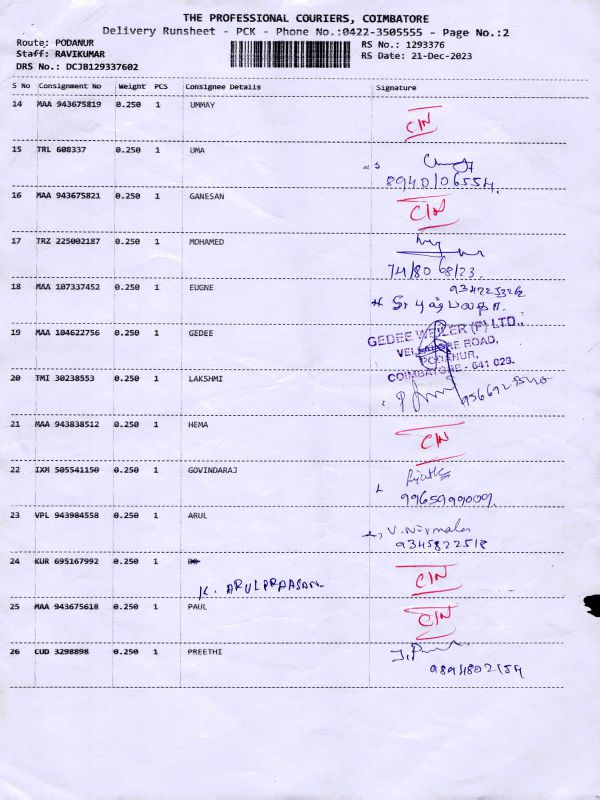 THE PROFESSIONAL COURIERS, COIMBATORE
Delivery Runsheet - PCK - Phone No.:0422-3505555 - Page No.:2
Route: PODANUR
RS No.: 1293376
Staff: RAVIKUMAR
RS Date: 21-Dec-2023
DRS No.: DCJB129337602
S No Consignment No Weight PCS Consignee Details Signature
14 MAA 943675819 0.250 1 UMMAY
CIN
15 TRL 608337 0.250 1 UMA
8940106554
16 MAA 943675821 0.250 1 GANESAN
CIN
17 TRZ 225002187 0.250 1 MOHAMED
74/80 68/23.
18 MAA 107337452 0.250 1 EUGNE
19 MAA 104622756 0.250 1 GEDEE
GEDEE WEILER (P) LTD.,
VELLALORE ROAD,
PODANUR,
COIMBATORE - 641 023.
20 TMI 30238553 0.250 1 LAKSHMI
21 MAA 943838512 0.250 1 HEMA
CIN
22 IXM 505541150 0.250 1 GOVINDARAJ
9965999009
23 VPL 943984558 0.250 1 ARUL
V. Nirmala
9345822518
24 KUR 695167992 0.250 1
K. ARULPRAASAN
CIN
25 MAA 943675618 0.250 1 PAUL
CIN
26 CUD 3298898 0.250 1 PREETHI
9894802154